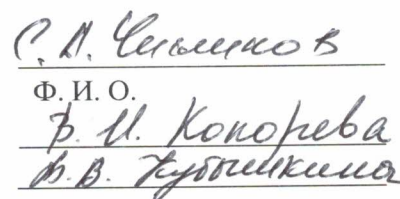 С. А. Чиликов
Ф. И. О.
В. И. Кокорева
В. В. Кубышкина